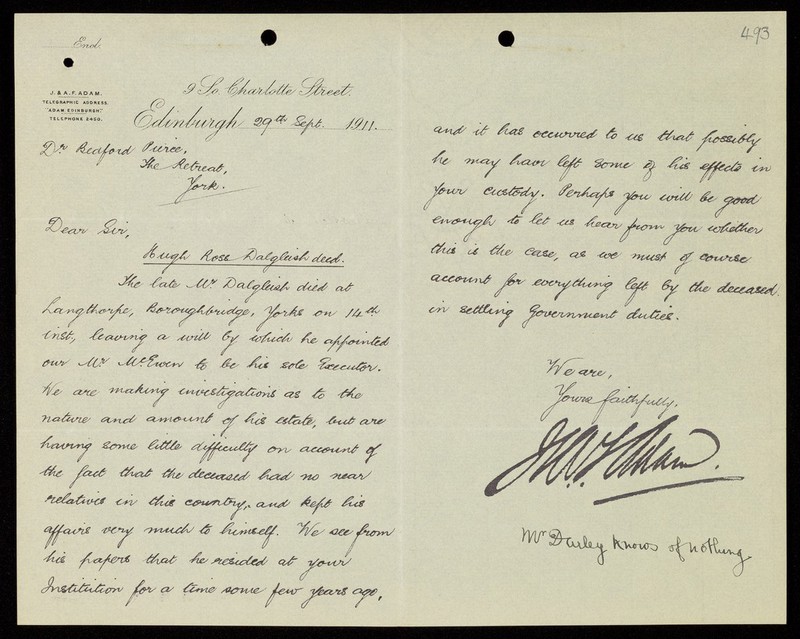 Encl.
J. & A. F. ADAM.
TELEGRAPHIC ADDRESS.
"ADAM EDINBURGH."
TELEPHONE 2400.
9 So. Charlotte Street.
Edinburgh 29th Sept. 1911.
Dr Bedford Pierce,
The Retreat,
York.
Dear Sir,
Hugh Ross Dalgleish decd.
The late Mr Dalgleish died at
Langthorpe, Boroughbridge, Yorks on 14th
inst, leaving a will by which he appointed
our Mr McEwen to be his sole Executor.
We are making investigations as to the
nature and amount of his estate, but are
having some little difficulty on account of
the fact that the deceased had no near
relatives in this country, and kept his
affairs very much to himself. We see from
his papers that he resided at your
Institution for a time some few years ago,
493
and it has occurred to us that possibly
he may have left some of his effects in
your custody. Perhaps you will be good
enough to let us hear from you whether
this is the case, as we must of course
account for everything left by the deceased
in settling Government duties.
We are,
Yours faithfully,
J & A F Adam.
Mr Darley knows of nothing